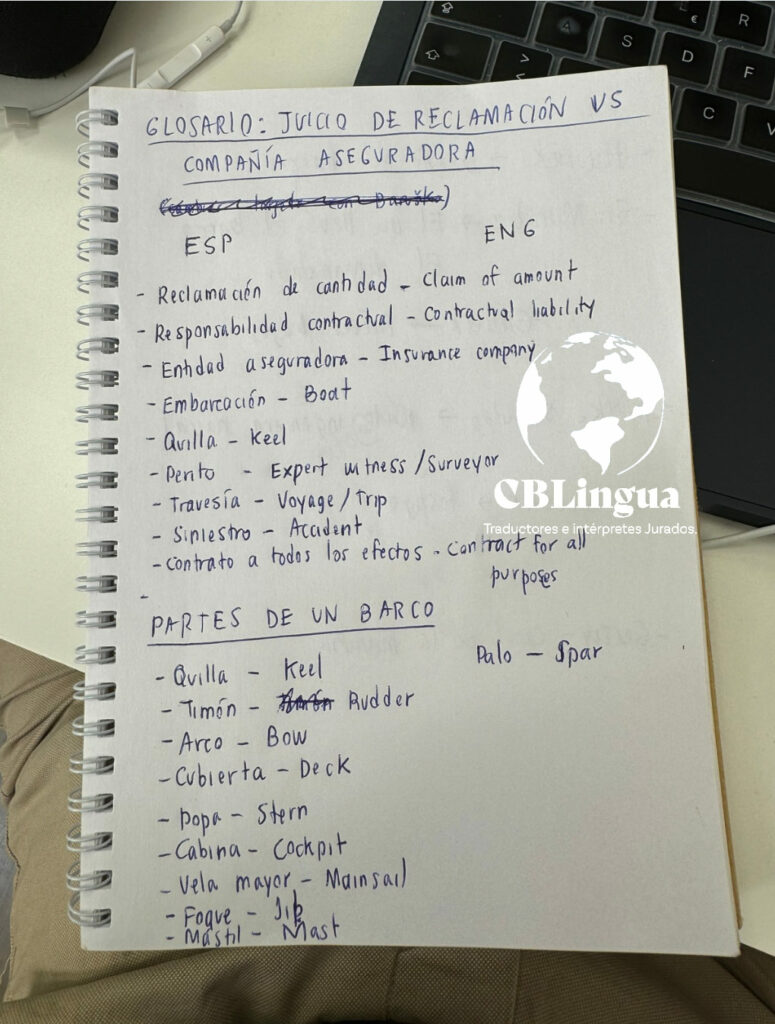 GLOSARIO: JUICIO DE RECLAMACIÓN VS
COMPAÑÍA ASEGURADORA
ESP
ENG
- Reclamación de cantidad - Claim of amount
- Responsabilidad contractual - Contractual liability
- Entidad aseguradora - Insurance company
- Embarcación - Boat
- Quilla - Keel
- Perito - Expert witness / Surveyor
- Travesía - Voyage / Trip
- Siniestro - Accident
- Contrato a todos los efectos - Contract for all
purposes
-
PARTES DE UN BARCO
- Quilla - Keel
Palo - Spar
- Timón - Rudder
- Arco - Bow
- Cubierta - Deck
- Popa - Stern
- Cabina - Cockpit
- Vela mayor - Mainsail
- Foque - Jib
- Mástil - Mast
CBLingua
Traductores e intérpretes Jurados.
R
€
A
S
D
F
C
V